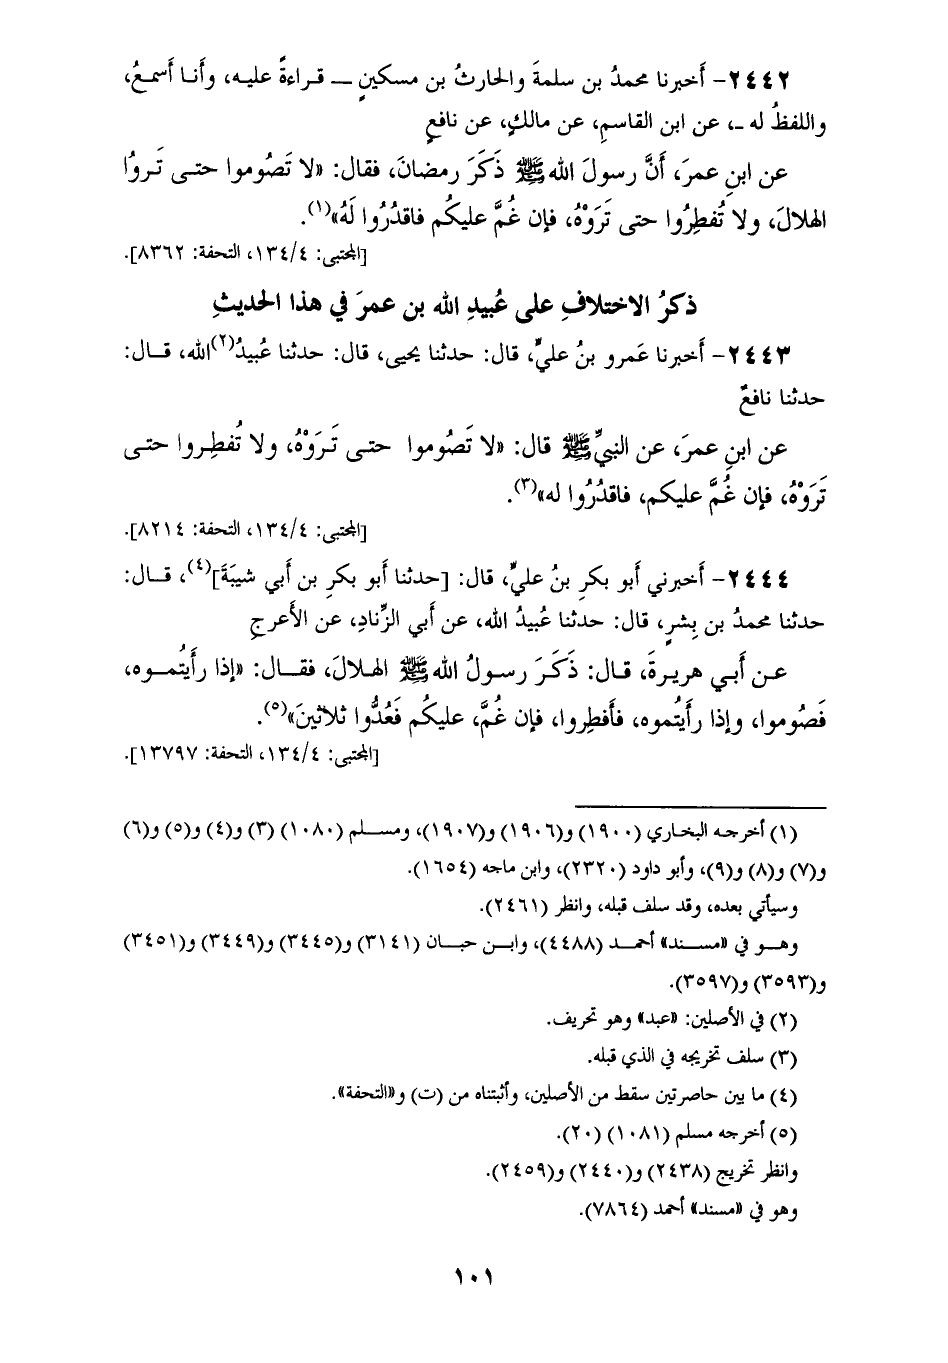 ٢٤٤٢- أخبرنا محمدُ بن سلمةَ والحارثُ بن مسكينٍ ــ قراءةً عليه، وأنا أسمعُ،
واللفظُ له ـ، عن ابن القاسمِ، عن مالكٍ، عن نافعٍ
عن ابنِ عمرَ، أنَّ رسولَ الله ﷺ ذَكَرَ رمضانَ، فقال: «لا تَصُوموا حتى تَروُا
الهلالَ، ولا تُفطِرُوا حتى تَرَوْهُ، فإن غُمَّ عليكُم فاقدُرُوا لَهُ»(١).
[المجتبى: ١٣٤/٤، التحفة: ٨٣٦٢].
ذكرُ الاختلافِ على عُبيدِ الله بن عمرَ في هذا الحديثِ
٢٤٤٣- أخبرنا عَمرو بنُ عليٍّ، قال: حدثنا يحيى، قال: حدثنا عُبيدُ(٢)الله، قال:
حدثنا نافعٌ
عن ابنِ عمرَ، عن النبيِّ ﷺ قال: «لا تَصُوموا حتى تَرَوْهُ، ولا تُفطِروا حتى
تَرَوْهُ، فإن غُمَّ عليكم، فاقدُرُوا له»(٣).
[المجتبى: ١٣٤/٤، التحفة: ٨٢١٤].
٢٤٤٤- أخبرني أبو بكرِ بنُ عليٍّ، قال: [حدثنا أبو بكرِ بن أبي شيبَةَ](٤)، قال:
حدثنا محمدُ بن بِشرٍ، قال: حدثنا عُبيدُ الله، عن أبي الزِّنادِ، عن الأعرجِ
عن أبي هريرةَ، قال: ذَكَرَ رسولُ الله ﷺ الهلالَ، فقال: «إذا رأيتُموه،
فَصُوموا، وإذا رأيتُموه، فأفطِروا، فإن غُمَّ، عليكُم فَعُدُّوا ثلاثينَ»(٥).
[المجتبى: ١٣٤/٤، التحفة: ١٣٧٩٧].
(١) أخرجه البخاري (١٩٠٠) و(١٩٠٦) و(١٩٠٧)، ومسلم (١٠٨٠) (٣) و(٤) و(٥) و(٦)
و(٧) و(٨) و(٩)، وأبو داود (٢٣٢٠)، وابن ماجه (١٦٥٤).
وسيأتي بعده، وقد سلف قبله، وانظر (٢٤٦١).
وهو في «مسند» أحمد (٤٤٨٨)، وابن حبان (٣١٤١) و(٣٤٤٥) و(٣٤٤٩) و(٣٤٥١)
و(٣٥٩٣) و(٣٥٩٧).
(٢) في الأصلين: «عبد» وهو تحريف.
(٣) سلف تخريجه في الذي قبله.
(٤) ما بين حاصرتين سقط من الأصلين، وأثبتناه من (ت) و«التحفة».
(٥) أخرجه مسلم (١٠٨١) (٢٠).
وانظر تخريج (٢٤٣٨) و(٢٤٤٠) و(٢٤٥٩).
وهو في «مسند» أحمد (٧٨٦٤).
١٠١